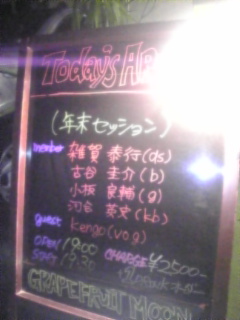 Today's AR
(年末セッション)
member 雑賀 泰行(ds)
古谷 圭介(b)
小坂 良輔(g)
河合 英史(kb)
guest Kengo(vo.g)
OPEN 19:00 CHARGE ¥2500-
START 19:30
GRAPEFRUIT MOON